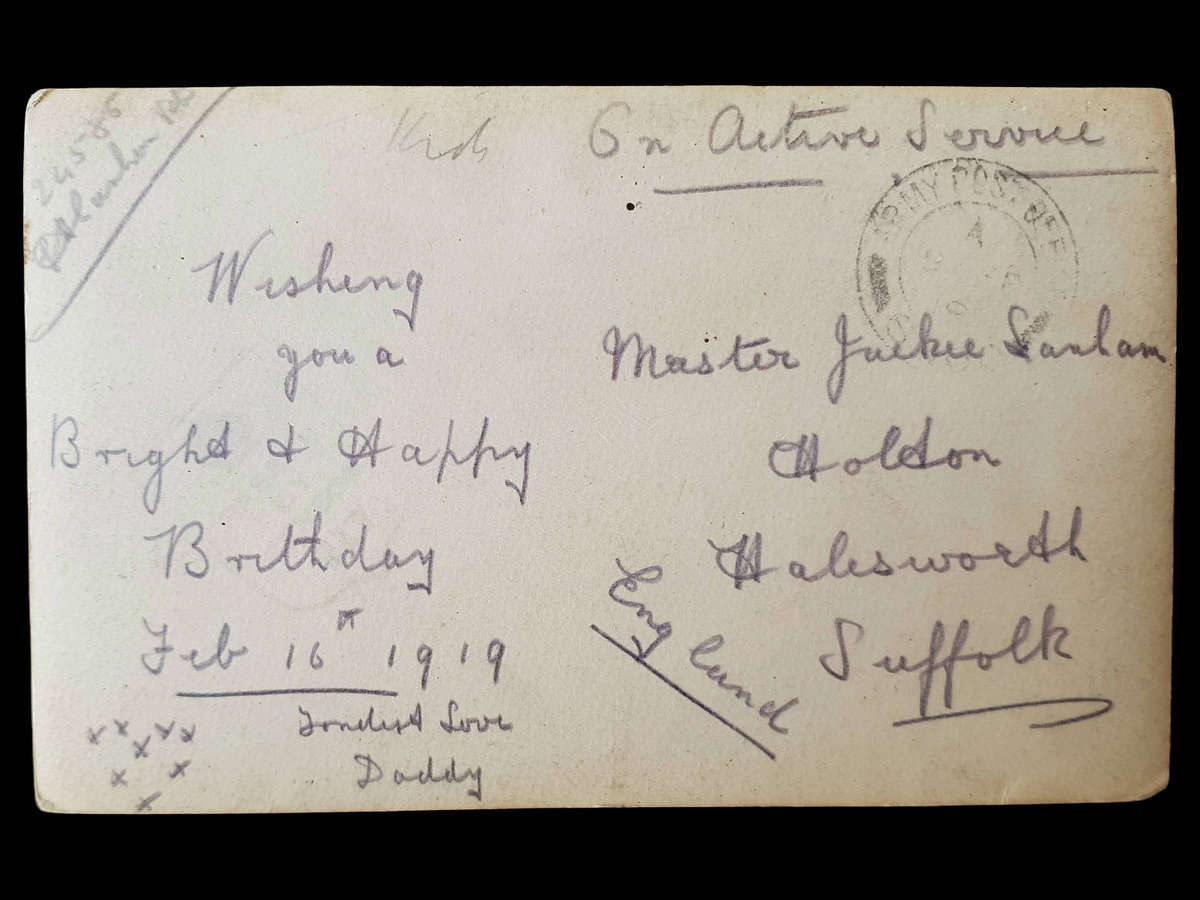 On Active Service
ARMY POST OFF
A
Wishing
you a
Bright & Happy
Birthday
Feb 16th 1919
Fondest Love
Daddy
x x x x x x x x
Master Jackie Lanham
Holton
Halesworth
Suffolk
England